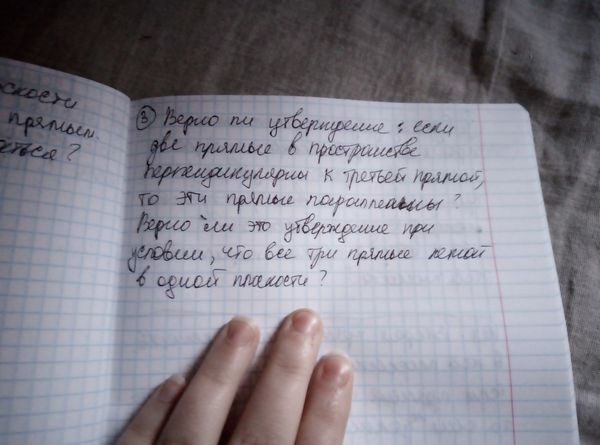 скости
прямым.
③ Верно ли утверждение: если
две прямые в пространстве
перпендикулярны к третьей прямой,
то эти прямые параллельны?
Верно ли это утверждение при
условии, что все три прямые лежат
в одной плоскости?